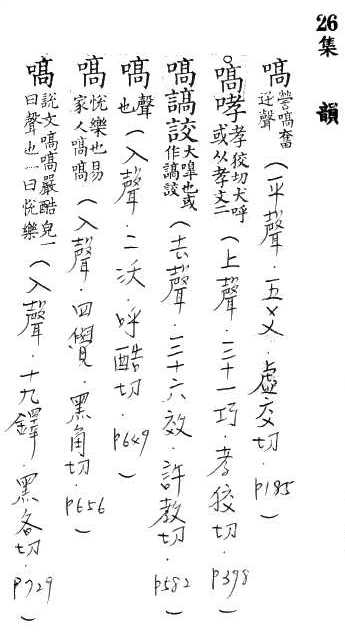 26 集韻
嗃 謷嗃奮迅聲（平聲．五爻．虛交切．p185）
嗃哮 孝狡切犬呼或从孝文二（上聲．三十一巧．孝狡切．p398）
嗃謞詨 大嘷也或作謞詨（去聲．三十六效．許教切．p582）
嗃 聲也（入聲．二沃．呼酷切．p649）
嗃 悅樂也易家人嗃嗃（入聲．四覺．黑角切．p656）
嗃 說文嗃嗃嚴酷皃一曰聲也一曰悅樂（入聲．十九鐸．黑各切．p729）